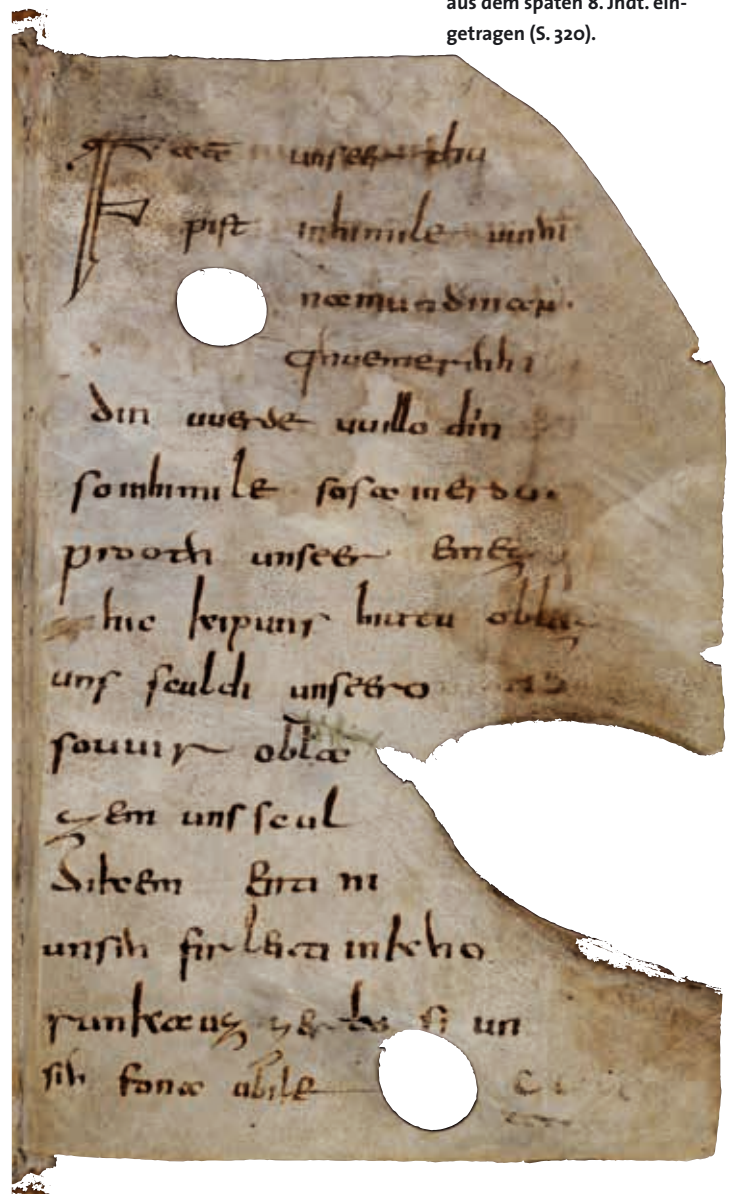 aus dem späten 8. Jhdt. ein-
getragen (S. 320).
Fater unseer thu
pist inhimile uuihi
namun dinan
qhueme rihhi
din uuerde uuillo diin
so inhimile sosa in erdu.
prooth unseer emez
hic kip uns hiutu oblaz
uns sculdi unseero
so uuir obla
zem uns scul
dikem enti ni
unsih firleiti in kho
runka uz zer losi un
sih fona ubile